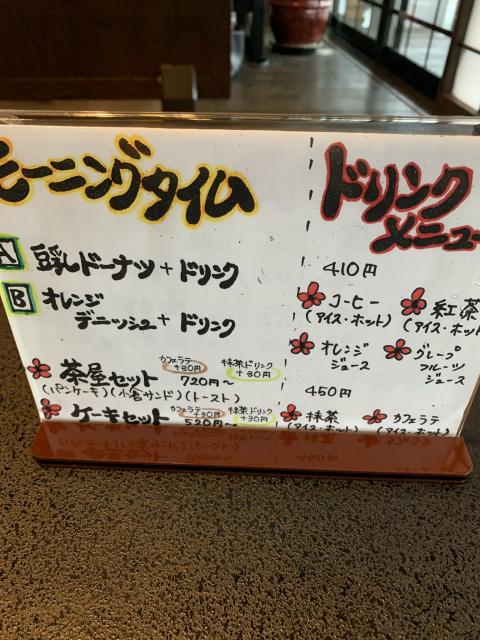 モーニングタイム
A 豆乳ドーナツ + ドリンク
B オレンジ
デニッシュ + ドリンク
カフェラテ +30円 抹茶ドリンク +30円
茶屋セット 720円〜
(パンケーキ)(小倉サンド)(トースト)
カフェラテ +30円 抹茶ドリンク +30円
ケーキセット 520円〜
ドリンク
メニュー
410円
コーヒー
(アイス・ホット)
紅茶
(アイス・ホット
オレンジ
ジュース
グレープ
フルーツ
ジュース
450円
抹茶
(アイス・ホット)
カフェラテ
(アイス・ホット)